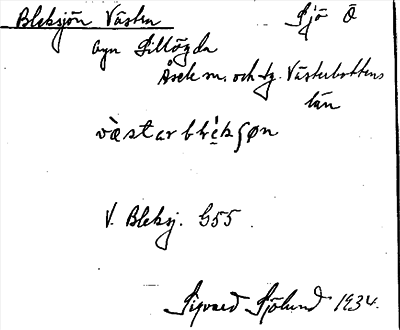 Bleksjön Västra Sjö Ö
byn Lillögda
Åsele m. och tg. Västerbottens
län
väst ar blèkʃøn
V. Bleksj. G55.
Sigvard Sjölund 1934.